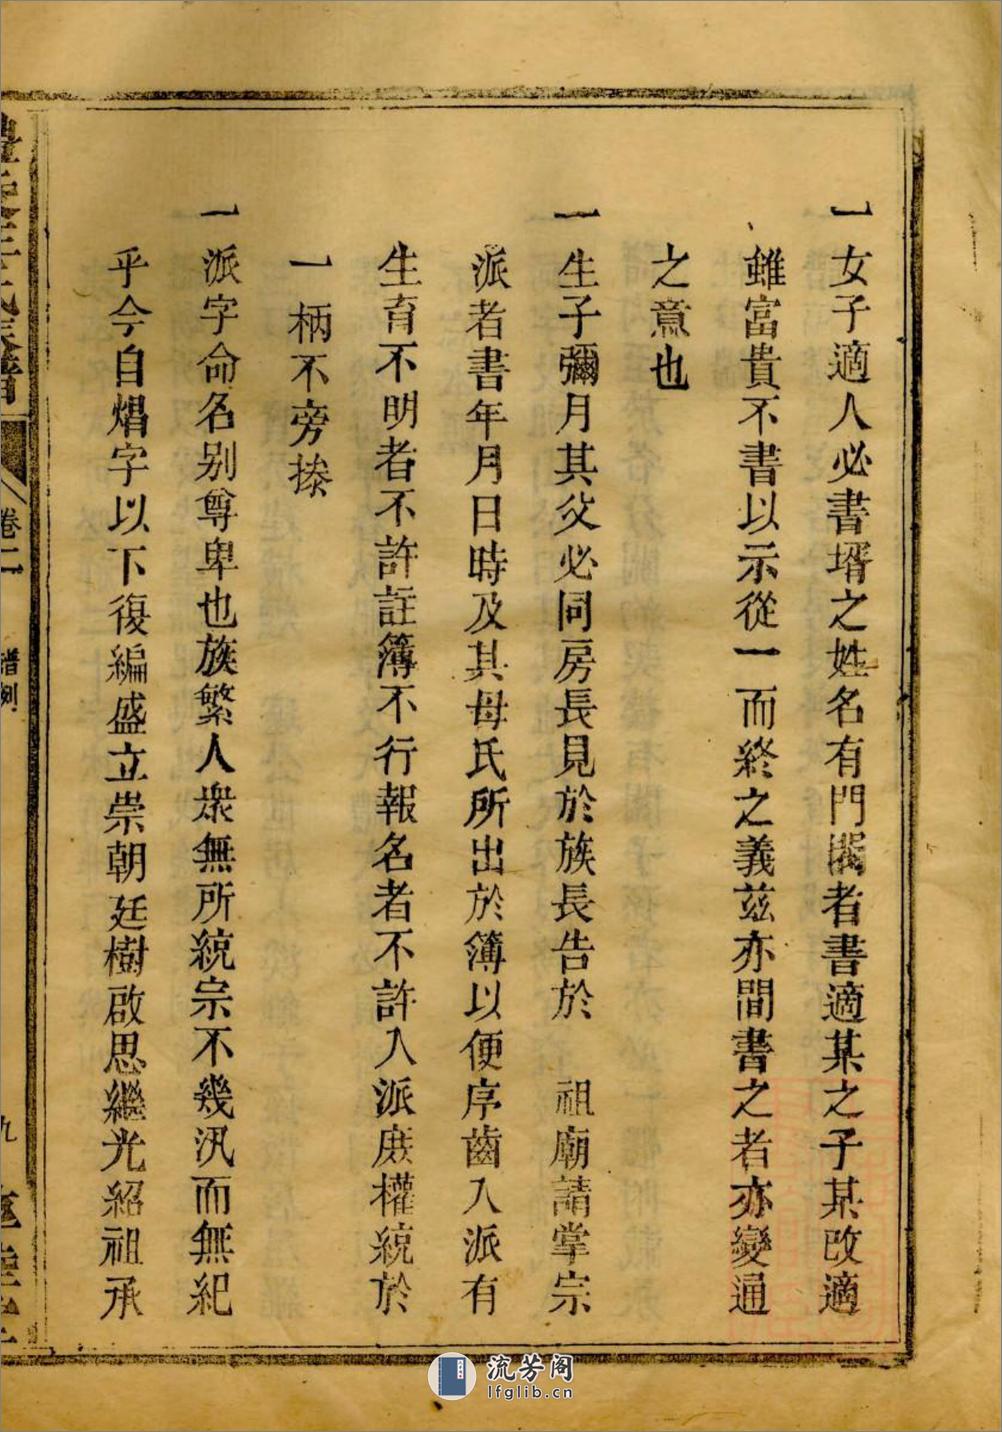 一女子適人必書壻之姓名有門閥者書適某之子某改適
雖富貴不書以示從一而終之義茲亦間書之者亦變通
之意也
一生子彌月其父必同房長見於族長告於 祖廟請掌宗
派者書年月日時及其母氏所出於簿以便序齒入派有
生育不明者不許註簿不行報名者不許入派庶權統於
一柄不旁㨿
一派字命名别尊卑也族繁人衆無所統宗不幾汎而無紀
乎今自焻字以下復編盛立崇朝廷樹啟思繼光紹祖承
氏族譜
卷二
譜例
九
流芳阁
lfglib.cn